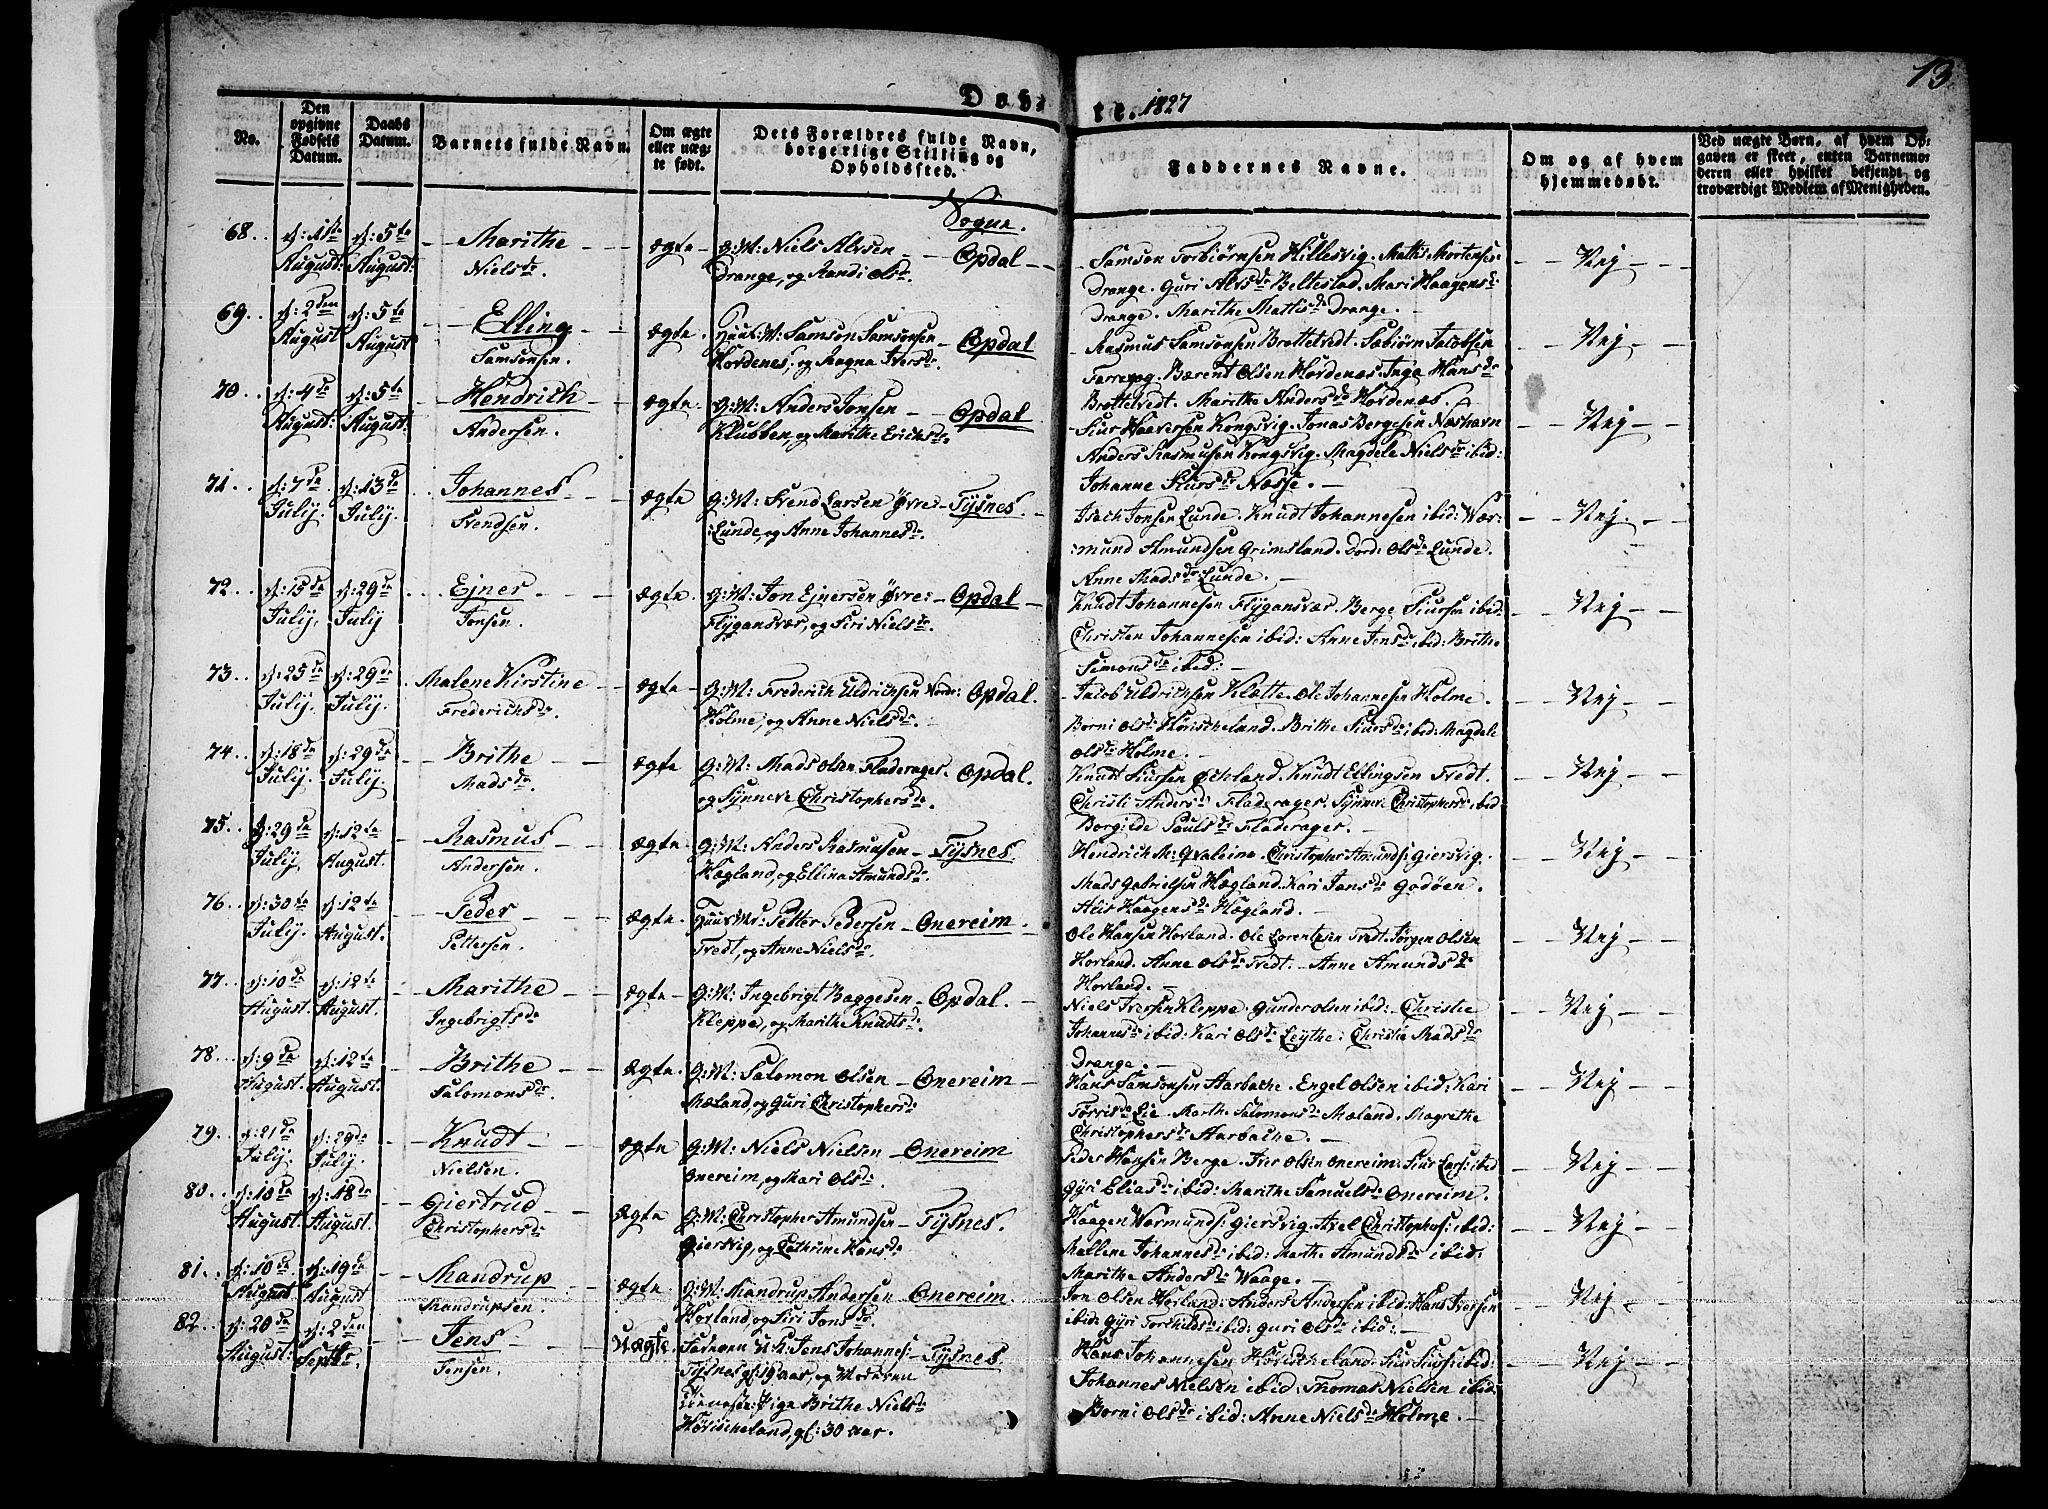 13.
Døb- te. 1827
No.
Den opgivne Fødsels Datum.
Daabs Datum.
Barnets fulde Navn.
Om ægte eller uægte født.
Dets Forældres fulde Navn, borgerlige Stilling og Opholdssted.
Faddernes Navne.
Om og af hvem hjemmedøbt.
Ved uægte Børn, af hvem Opgaven er skeet, enten Barnemoderen eller hvilket bekjendt og troværdigt Medlem af Menigheden.
Sogne.
68. d: 1ste August: d: 5te August: Marithe Nielsdr ægte G: M: Niels Alvsen Drange, og Randi Olsdr. Opdal
Samson Torbiørnsen Hillesvig. Mathis Mortensen
Drange. Guri Alvsdr Beltestad. Mari Haagensdr
Drange. Marithe Mattisdr Drange.
Nej
69. d: 2den August d: 5te August Elling Samsonsen. ægte Huus M: Samson Samsonsen Hovdenes, og Ragna Iversdr. Opdal
Rasmus Samsonsen Brottetvedt. Sæbiørn Jacobsen
Færrevog. Bærent Olsen Hovdenæs. Inge Hansdr
Brottetvedt. Marithe Andersdr Hovdenæs.
Nej
70. d: 4de August: d: 5te August: Hendrich Andersen. ægte G: M: Anders Jonsen Klubben, og Marithe Erichsdr. Opdal
Siur Haaversen Kongsvig. Jonas Bergesen Næshavn
Anders Rasmusen Kongsvig. Magdele Nielsdr ibid:
Johanne Siursdr Næsse.
Nej
71. d: 7de Julij. d: 13de Julij. Johannes Svendsen. ægte G: M: Svend Larsen Øvre Lunde, og Anne Johannesdr. Tysnes.
Isach Jonsen Lunde. Knudt Johannesen ibid: Wær-
mund Amundsen Grimsland. Dord: Olsdr Lunde.
Anne Madsdr Lunde.
Nej.
72. d: 15de Julij. d: 29de Julij Ejner Jonsen. ægte G: M: Jon Ejnersen Øvre Flygansvær, og Siri Nielsdr. Opdal
Knudt Johannesen Flygansvær. Berge Siursen ibid:
Christen Johannesen ibid: Anne Jensdr ibid: Brithe
Simonsdr ibid:
Nej
73. d: 25de Julij. d: 29de Julij. Malene Kirstine Frederichsdr. ægte G: M: Frederich Uldrichsen Nordr: Holme, og Anne Nielsdr. Opdal.
Jacob Uldrichsen Klætte. Ole Johannesen Holme.
Borni Olsdr Høvischeland. Brithe Siursdr ibid: Magdele
Olsdr Holme.
Nej
74. d: 18de Julij. d: 29de Julij Brithe Madsdr. ægte G: M: Mads Olsen Fladerager. og Synneve Christophersdr. Opdal.
Knudt Siursen Økland. Knudt Ellingsen Tvedt.
Christi Andersdr Fladerager. Synneve Christophersdr ibid:
Borgilde Paulsdr Fladerager.
Nej
75. d: 29de Julij d: 12te August. Rasmus Andersen. ægte. G: M: Anders Rasmusen Hægland, og Ellina Amundsdr. Tysnes.
Hendrich M: Qvaleime. Christopher Amunds: Giersvig.
Mads Gabrielsen Hægland. Kari Jansdr Godøen.
Alis Haagensdr Hægland.
Nej
76. d: 30te Julij. d: 12te August. Peder Pettersen. ægte. Huus M: Petter Pedersen Tvedt, og Anne Nielsdr. Onereim.
Ole Hansen Hovland. Ole Lorentzen Tvedt. Jørgen Olsen
Hovland. Anne Olsdr Tvedt. Anne Amundsdr
Hovland.
Nej
77. d: 10de August. d: 12te August. Marithe Ingebrigtsdr ægte G: M: Ingebrigt Baggesen Kleppe, og Marithe Knudtsdr. Opdal.
Niels Iversen Kleppe. Gunder Olsen ibid: Christie
Johannesdr ibid: Kari Olsdr Leythe. Christie Madsdr
Drange.
Nej
78. d: 9de August. d: 12te August. Brithe Salomonsdr. ægte. G: M: Salomon Olsen Mæland, og Guri Christophersdr Onereim
Hans Samsonsen Aarbache. Engel Olsen ibid: Kari
Torrisdr Lie. Marthe Salomonsdr Mæland. Magrethe
Christophersdr Aarbache.
Nej
79. d: 21de Julij. d: 29de Julij. Knudt Nielsen. ægte G: M: Niels Nielsen Onereim, og Mari Olsdr. Onereim
Peder Hansen Berge. Iver Olsen Onereim. Siur Lars: ibid
Gyri Eliasdr ibid: Marithe Samuelsdr Onereim.
Nej
80. d: 10de August. d: 18de August. Giertrud Christophersdr ægte G: M: Christopher Amundsen Giersvig, og Cathrine Hansdr Tysnes.
Haagen Wormunds: Giersvig. Axel Christophers: ibid:
Mallene Johannesdr ibid: Marthe Amundsdr ibid:
Marithe Andersdr Waage.
Nej
81. d: 10de August d: 19de August Mandrup Mandrupsen. ægte G: M: Mandrup Andersen Hovland, og Siri Jonsdr. Onereim.
Jon Olsen Hovland. Anders Andersen ibid: Hans Iversen
ibid: Gyri Torchildsdr ibid: Guri Olsdr ibid:
Nej
82. d: 20de August. d: 2den Septbr. Jens Jensen. Uægte Faderen U: K: Jens Johannes: Tysnes gl: 19 aar, og Moderen Pige Brithe Nielsdr Høvischeland, gl: 30 aar. Tysnes
Hans Johannesen Høvischeland. Siur Siurs: ibid:
Johannes Nielsen ibid: Thomas Nielsen ibid:
Borni Olsdr ibid: Anne Nielsdr Holme.
Nej